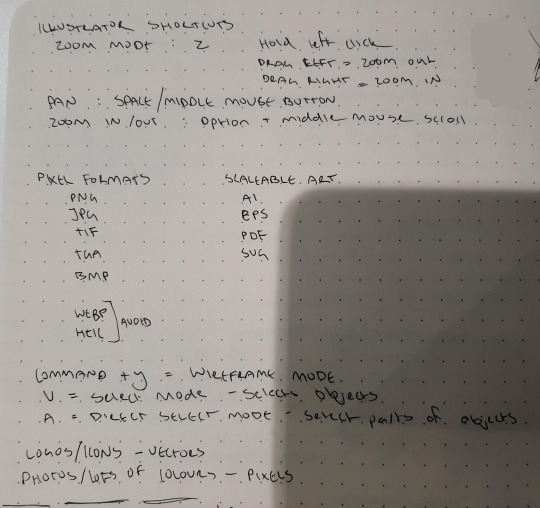 ILLUSTRATOR SHORTCUTS
ZOOM MODE : Z
Hold left click
DRAG LEFT = ZOOM OUT
DRAG RIGHT = ZOOM IN
PAN : SPACE/MIDDLE MOUSE BUTTON
ZOOM IN/OUT : OPTION + middle mouse scroll
PIXEL FORMATS
PNG
JPG
TIF
TGA
BMP
WEBP
HEIC
AVOID
SCALEABLE ART
AI
EPS
PDF
SVG
COMMAND + y = WIREFRAME MODE
V = Select mode - Selects objects
A = DIRECT SELECT MODE - Select parts of objects
LOGOS/ICONS - VECTORS
PHOTOS/LOTS OF COLOURS - PIXELS